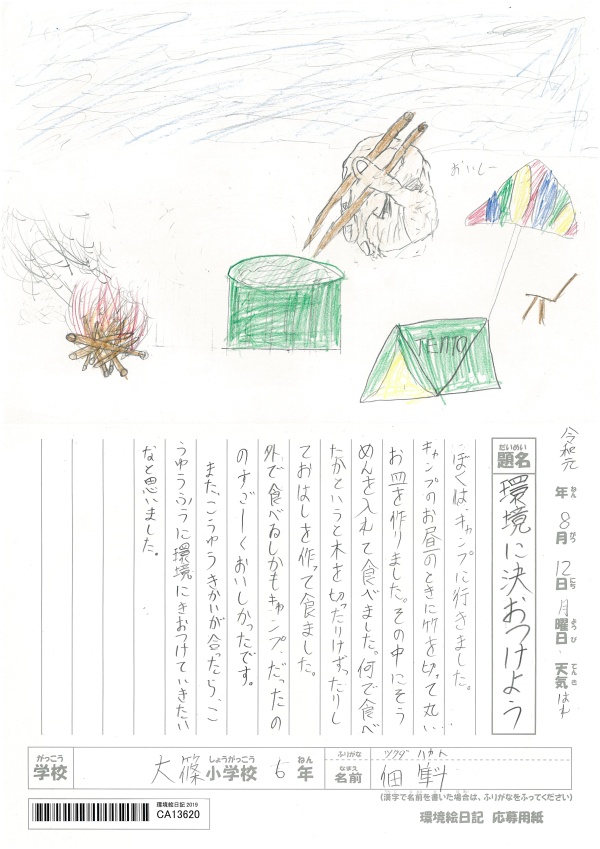 おいしー
TEMO
令和元年 8月 12日 月曜日 天気 はれ
ねん がつ にち ようび てんき
だいめい
題名 環境に決おつけよう
ぼくは、キャンプに行きました。
キャンプのお昼のときに竹を切って丸い
お皿を作りました。その中にそう
めんを入れて食べました。何で食べ
たかというと木を切ったりけずったりし
ておはしを作って食ました。
外で食べるしかもキャンプ、だったの
のすごーくおいしかったです。
また、こうゆうきかいが合ったら、こ
うゆうふうに環境にきおつけていきたい
なと思いました。
がっこう しょうがっこう ねん
学校 大篠小学校 6年
ふりがな ツクダ ハヤト
なまえ
名前 佃
(漢字で名前を書いた場合は、ふりがなをふってください)
環境絵日記 2019
CA13620
環境絵日記 応募用紙